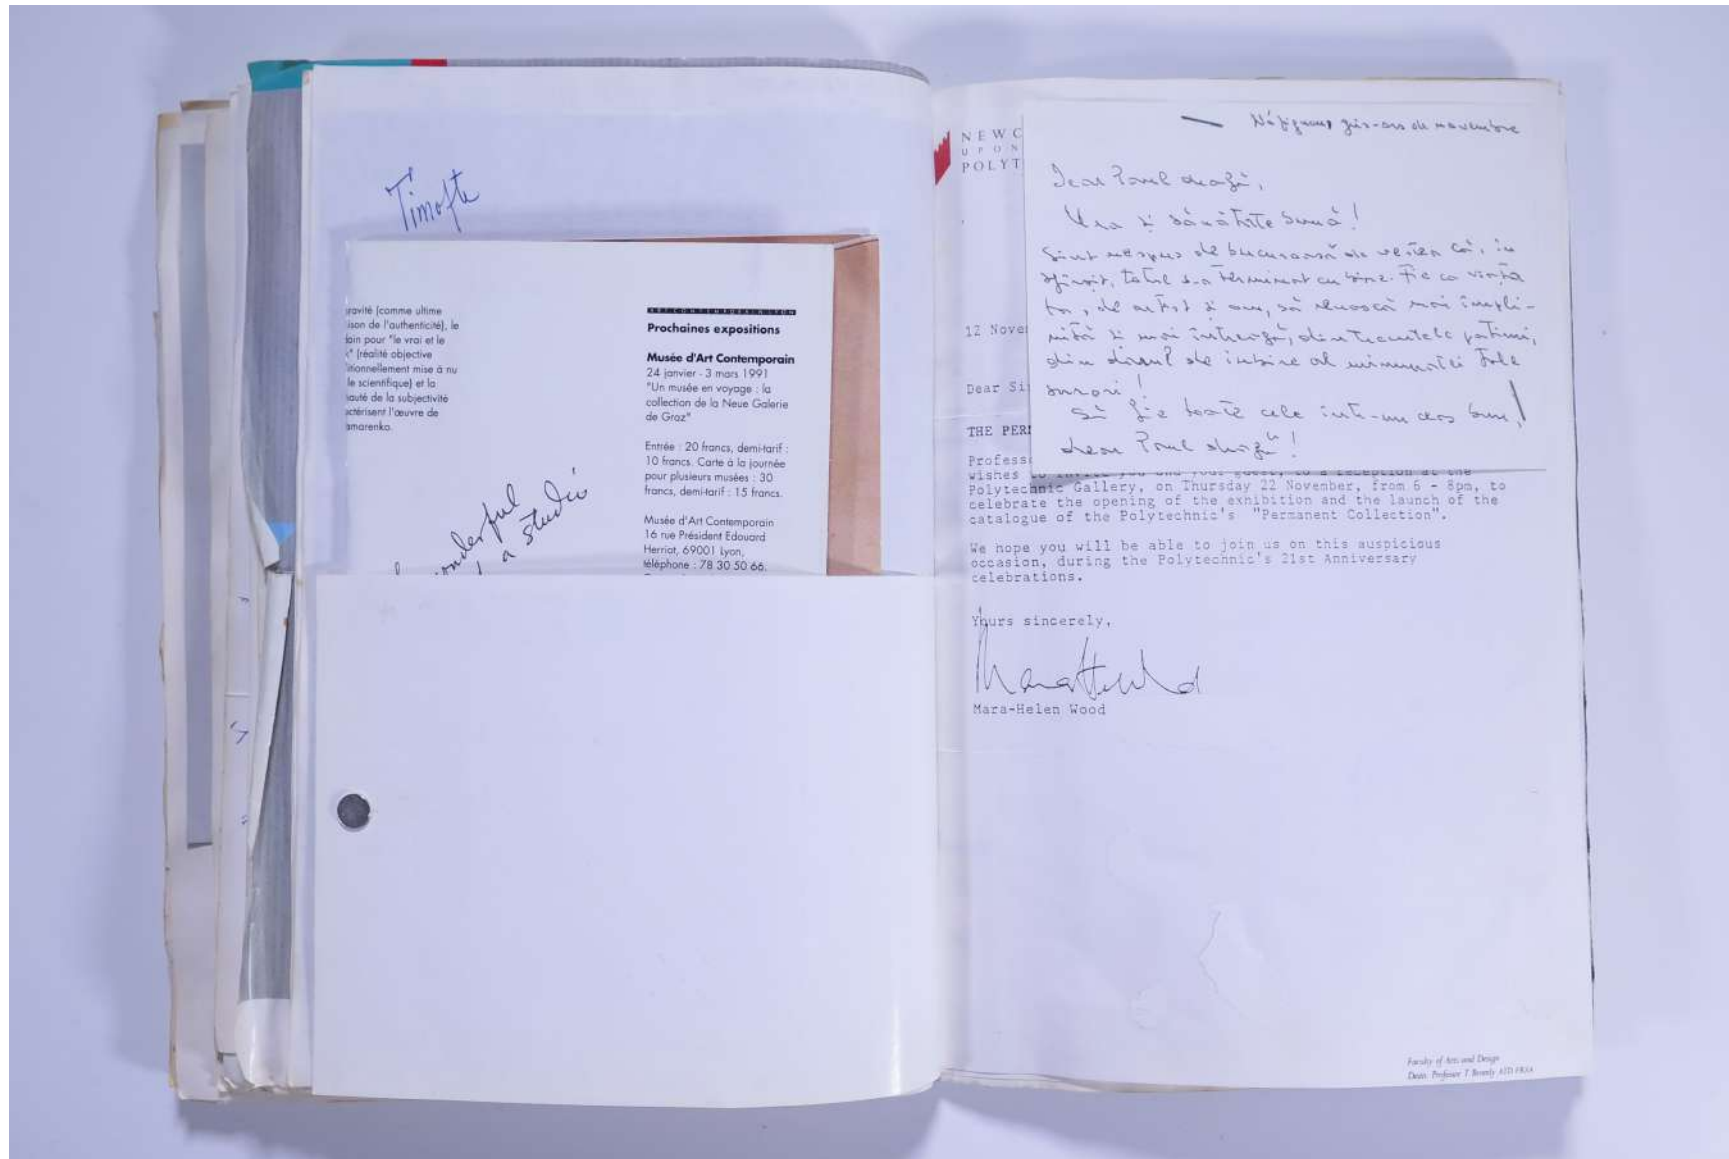 Timofte
ravité (comme ultime
ison de l'authenticité), le
ain pour "le vrai et le
" (réalité objective
itionnellement mise à nu
le scientifique) et la
auté de la subjectivité
actérisent l'œuvre de
amarenko.
wonderful
a studio
ART CONTEMPORAIN LYON
Prochaines expositions
Musée d'Art Contemporain
24 janvier - 3 mars 1991
"Un musée en voyage : la
collection de la Neue Galerie
de Graz"
Entrée : 20 francs, demi-tarif :
10 francs. Carte à la journée
pour plusieurs musées : 30
francs, demi-tarif : 15 francs.
Musée d'Art Contemporain
16 rue Président Edouard
Herriot, 69001 Lyon,
téléphone : 78 30 50 66.
NEWC
UPON
POLYT
de novembre
Dear Paul dragă,
Ura și sănătate bună!
Sînt nespus de bucuroasă de vestea că, în
sfîrșit, totul s-a terminat cu bine. Fie ca viața
ta, de artist și om, să renască mai împli-
nită și mai întreagă, din patimi,
din de iubire al minunatei tale
surori!
Să fie toate cele într-un ceas bun,
dear Paul dragă!
12 Nove
Dear Si
THE PER
Profess
wishes to invite you and your guest, to a reception at the
Polytechnic Gallery, on Thursday 22 November, from 6 - 8pm, to
celebrate the opening of the exhibition and the launch of the
catalogue of the Polytechnic's "Permanent Collection".
We hope you will be able to join us on this auspicious
occasion, during the Polytechnic's 21st Anniversary
celebrations.
Yours sincerely,
Mara-Helen Wood
Faculty of Arts and Design
Dean: Professor T Bromly ATD FRSA